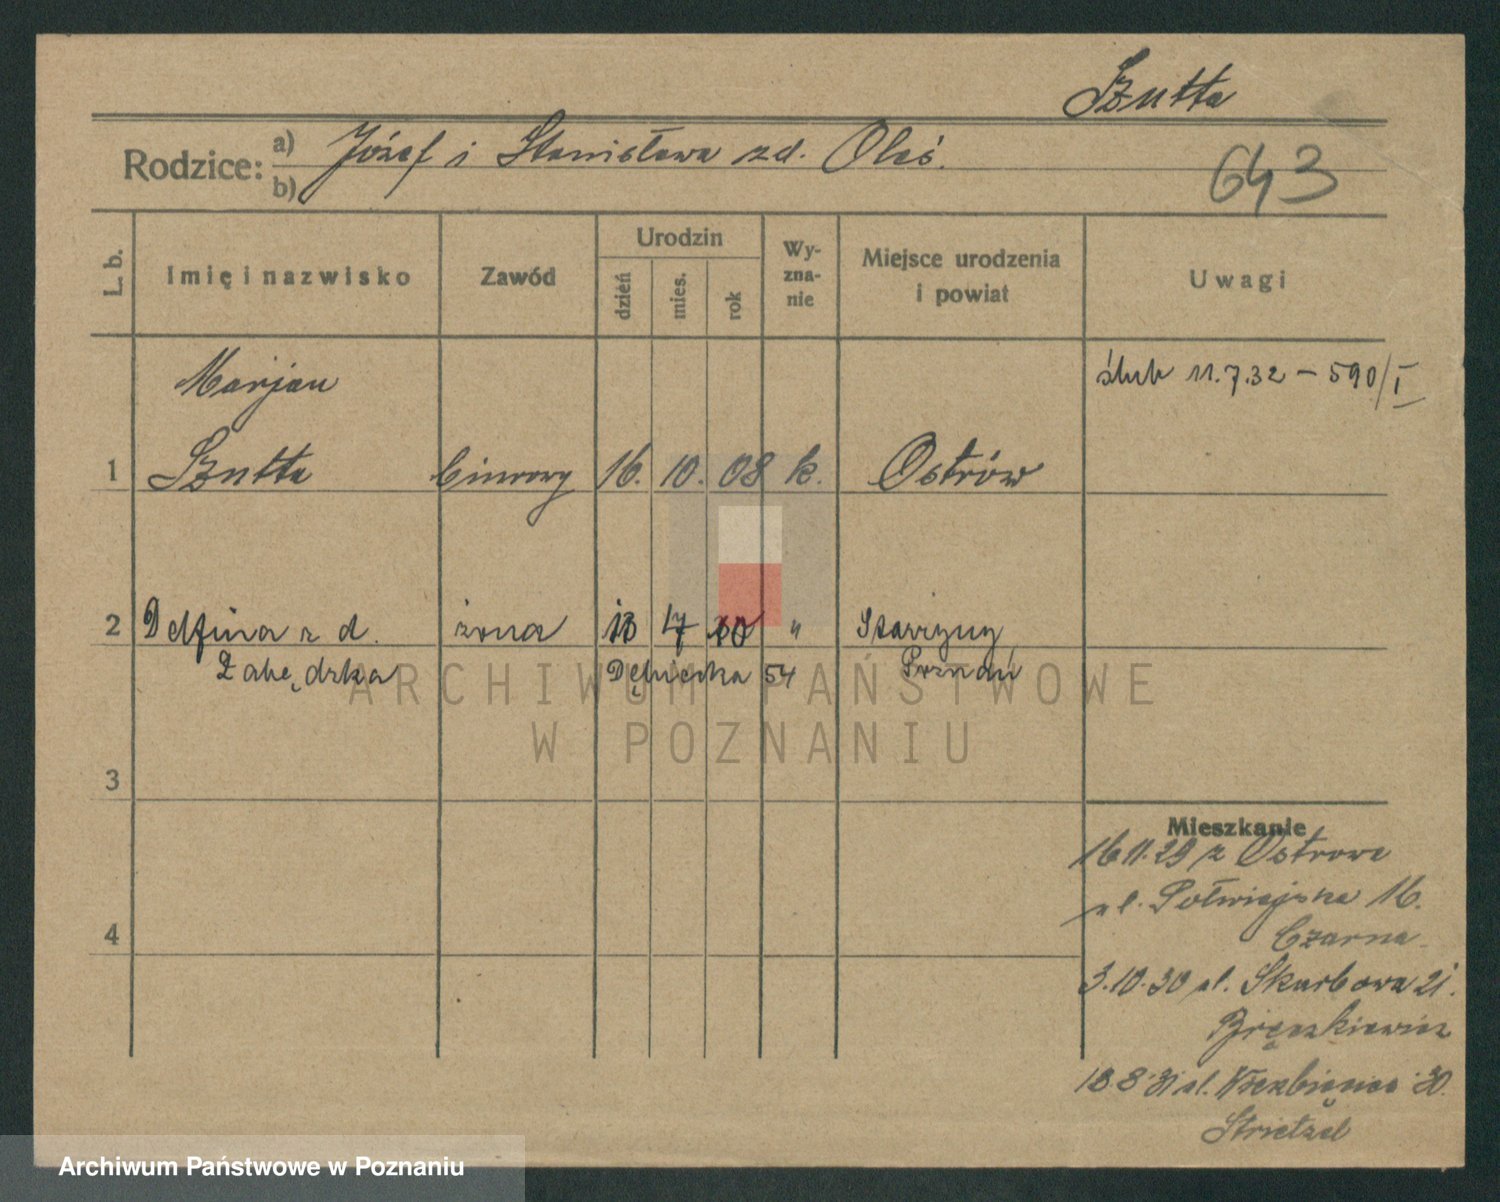 Szutta
Rodzice: a) Józef i Stanisława zd. Oleś.
b)
643
L. b.
Imię i nazwisko
Zawód
Urodzin
dzień
mies.
rok
Wy-
zna-
nie
Miejsce urodzenia
i powiat
Uwagi
Marjan
ślub 11.7.32 – 590/I
1 Szutta 16. 10. 08 k. Ostrów
2 Delfina z d. żona 13 " Starzyny
Dębiecka 54 Poznań
ARCHIWUM PAŃSTWOWE
W POZNANIU
3
4
Mieszkanie
16.11.29 z Ostrowa
ul. Półwiejska 16.
Czarna
3.10.30 ul. Skarbowa 21.
18.8.31 ul. 30.
Strietzel
Archiwum Państwowe w Poznaniu